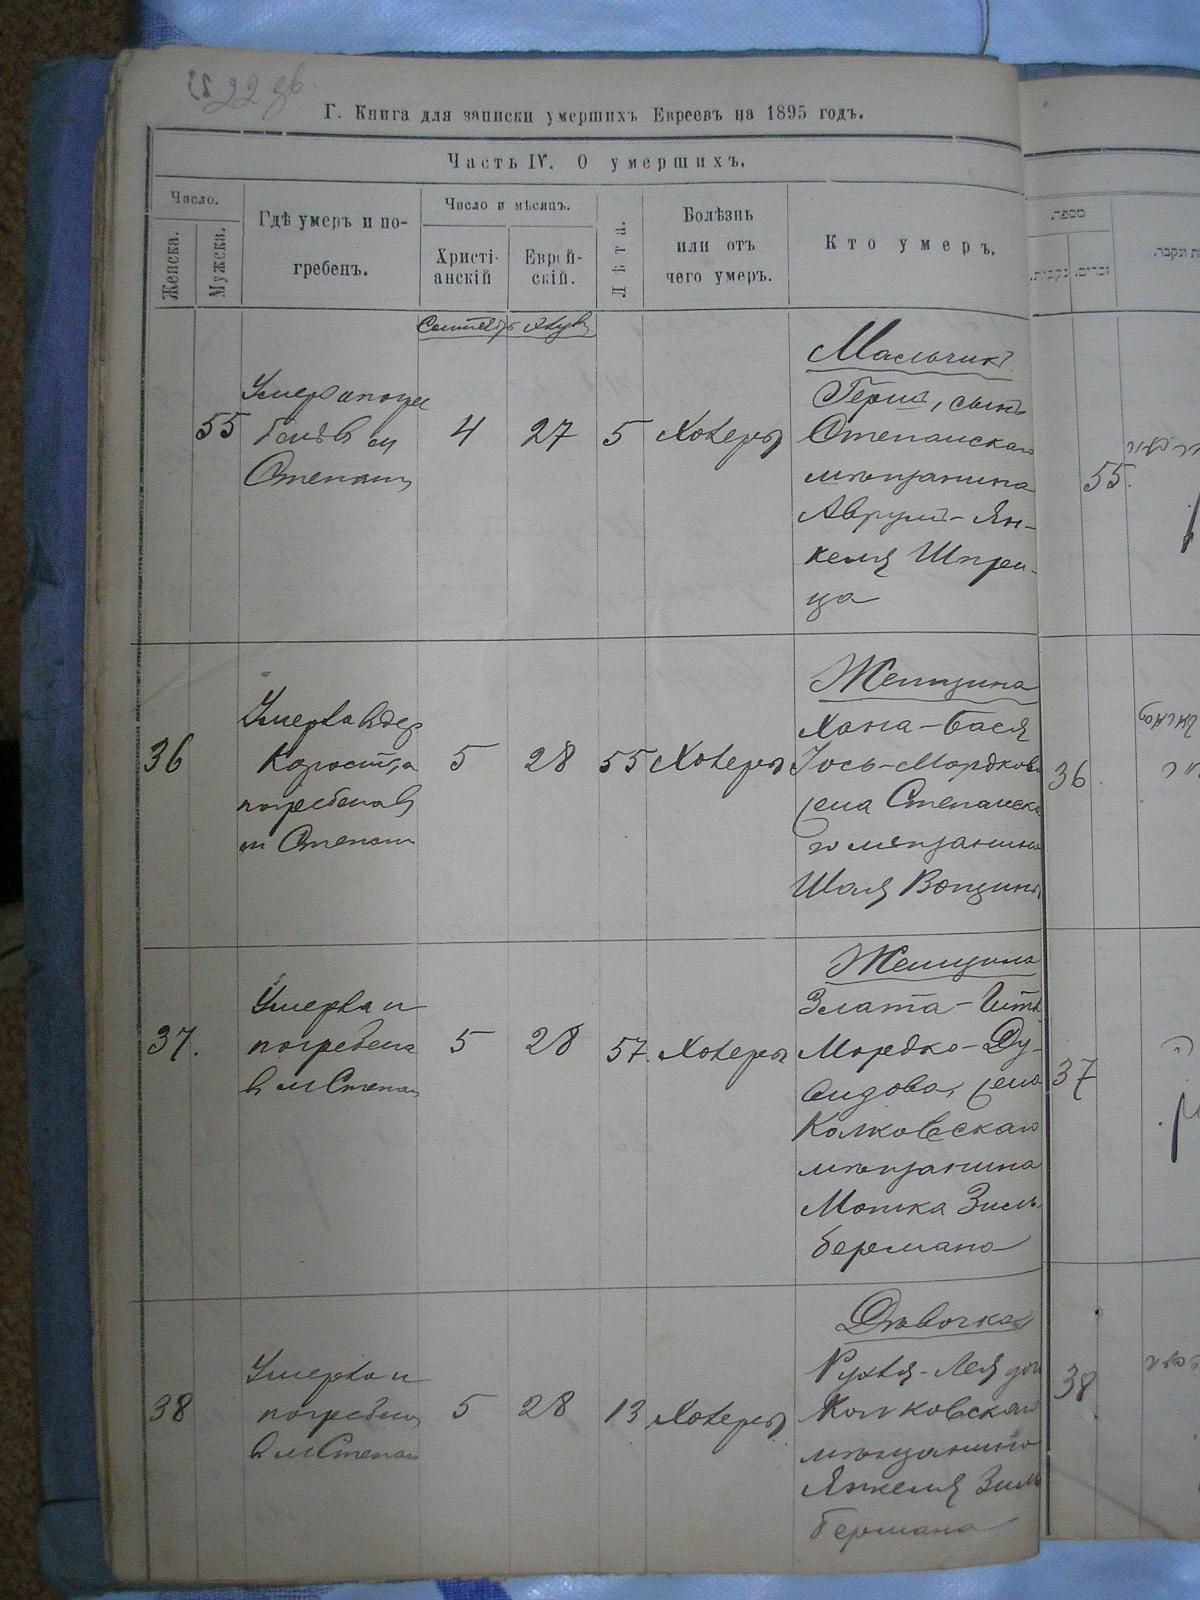 22 дв.
Г. Книга для записки умершихъ Евреевъ на 1895 годъ.
Часть IV. О умершихъ.
Число.
Женска.
Мужска.
Гдѣ умеръ и по-
гребенъ.
Число и мѣсяцъ.
Христі-
анскій
Еврей-
скій.
Лѣта.
Болѣзнь
или отъ
чего умеръ.
Кто умеръ.
מספר.
נקבות.
זכרים.
Сентябрь
55
Умеръ и погре
бенъ в м
Степани
4
27
5
Холеры
Мальчикъ
Герш, сынъ
Степанскаго
мѣщанина
Аврум-Ян-
келя Шпрен-
ца
55.
36
Умерла в дер
Корост, а
погребена в
м Степани
5
28
55
Холеры
Женщина
Хана-Бася
Іось-Мордкова
жена Степанска
го мѣщанина
Шая Вощины
36
37.
Умерла и
погребена
в м Степан
5
28
57.
Холеры
Женщина
Злата-Итт
Мордко-Ду-
видова, жена
Колковскаго
мѣщанина
Мошка Зиль
бермана
37
38
Умерла и
погребена
в м Степан
5
28
13
Холеры
Дѣвочка
Рухля-Лея доч
Колковскаго
мѣщанина
Янкеля Зиль
бермана
38